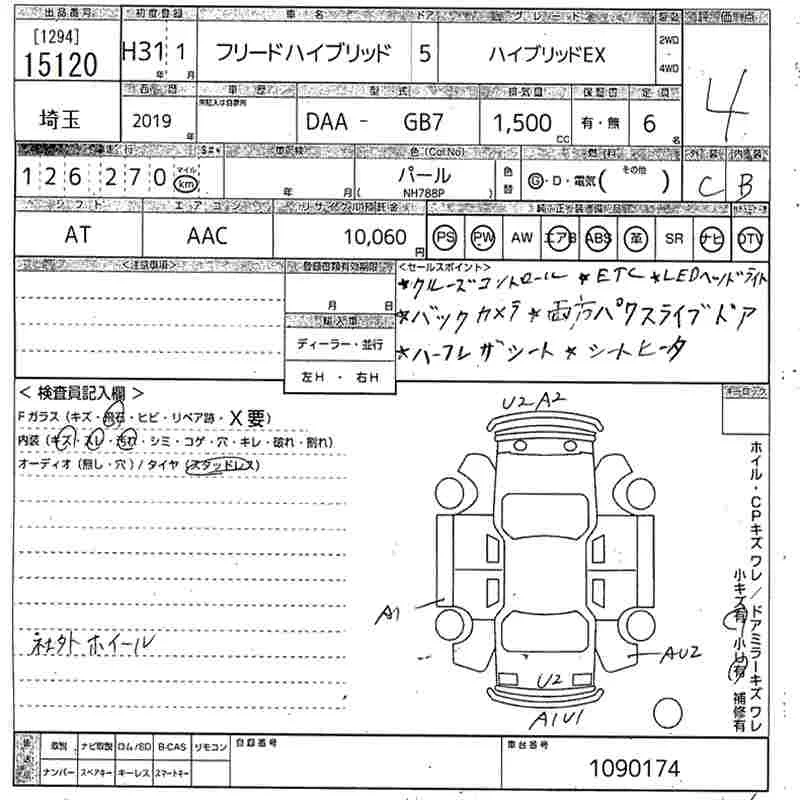 出品番号 初度登録 車名 ドア グレード 駆動 評価点
[1294]
15120
H31 1
年 月
フリードハイブリッド 5 ハイブリッドEX
2WD
・
4WD
4
西暦 車歴 型式 排気量 保証書 定員
未記入は自家用
埼玉 2019 年 DAA - GB7 1,500 CC 有・無 6 名
走行 車検 色(Col No) 燃料 外装 内装
126,270 マイル km
年 月
パール
( NH788P )
色替
G・D・電気( その他 )
C B
シフト エアコン リサイクル預託金 純正装備品
AT AAC 10,060 円 PS PW AW エアB ABS 革 SR ナビ DTV
<注意事項> 登録書類有効期限 <セールスポイント>
月 日
輸入車
ディーラー・並行
左H ・ 右H
★クルーズコントロール ★ETC ★LEDヘッドライト
★バックカメラ ★両方パワスライブドア
★ハーフレザシート ★シートヒータ
< 検査員記入欄 >
Fガラス(キズ・飛石・ヒビ・リペア跡・X要)
内装(キズ・スレ・汚れ・シミ・コゲ・穴・キレ・破れ・割れ)
オーディオ(無し・穴)/タイヤ(スタッドレス)
社外ホイール
U2 A2
A1
AU2
U2
A1U1
ホイル・CPキズワレ/ドアミラーキズワレ
小キズ有 小凹有 補修有
後送品
取説 ナビ取説 ロム/SD B-CAS リモコン
ナンバー スペアキー キーレス スマートキー
登録番号
車台番号
1090174